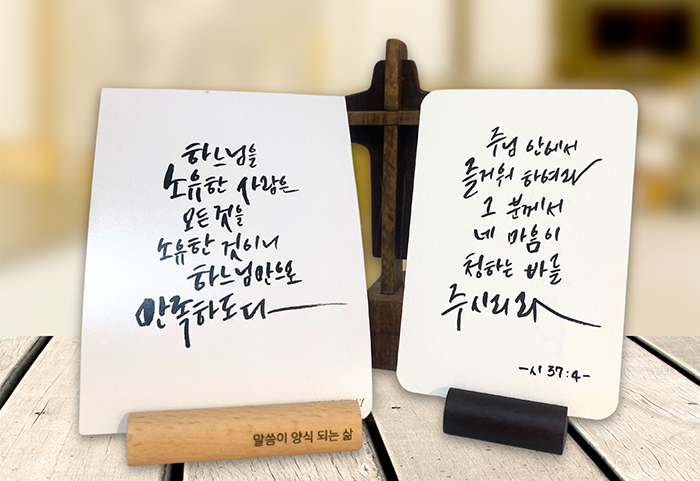 하느님을
소유한 사람은
모든 것을
소유한 것이니
하느님만으로
만족하도다
말씀이 양식 되는 삶
주님 안에서
즐거워 하여라
그 분께서
네 마음이
청하는 바를
주시리라
-시 37:4-